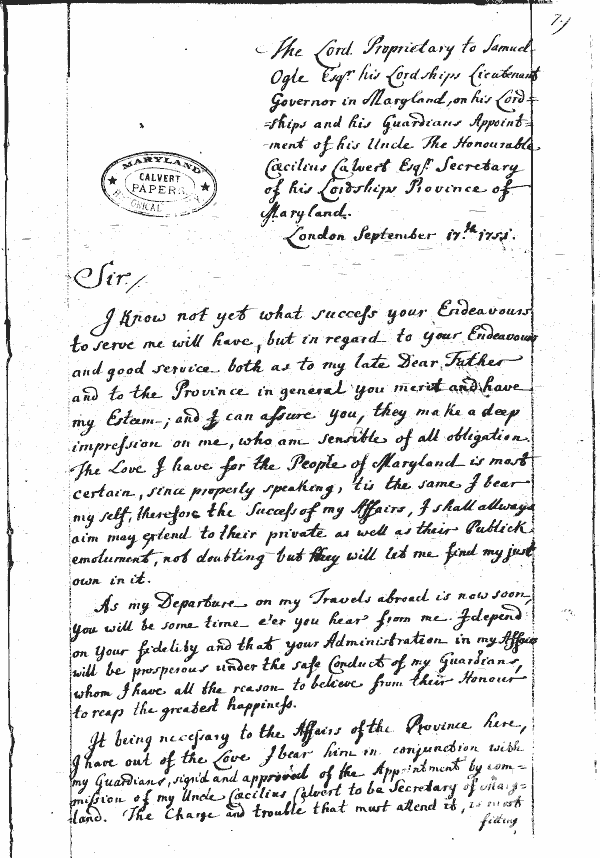 79
The Lord Proprietary to Samuel
Ogle Esqr. his Lordships Lieutenant
Governor in Maryland, on his Lord=
=ships and his Guardians Appoint=
=ment of his Uncle The Honourable
Cæcilius Calvert Esqr. Secretary
of his Lordships Province of
Maryland.
London September 17.th 1751.
MARYLAND
CALVERT
PAPERS
Sir/
I Know not yet what success your Endeavours
to serve me will have, but in regard to your Endeavours
and good service both as to my late Dear Father
and to the Province in general you merit and have
my Esteem; and I can assure you, they make a deep
impression on me, who am sensible of all obligation.
The Love I have for the People of Maryland is most
certain, since properly speaking, 'tis the same I bear
my self, therefore the Success of my Affairs, I shall allways
aim may extend to their private as well as their Publick
emolument, not doubting but they will let me find my just
own in it.
As my Departure on my Travels abroad is now soon,
you will be some time e'er you hear from me. I depend
on your fidelity and that your Administration in my Affairs
will be prosperous under the safe Conduct of my Guardians,
whom I have all the reason to believe from their Honour
to reap the greatest happiness.
It being necessary to the Affairs of the Province here,
I have out of the Love I bear him in conjunction with
my Guardians, sign'd and approved of the Appointment by com=
mission of my Uncle Cæcilius Calvert to be Secretary of Mary=
land. The Charge and trouble that must attend it, is most
fitting